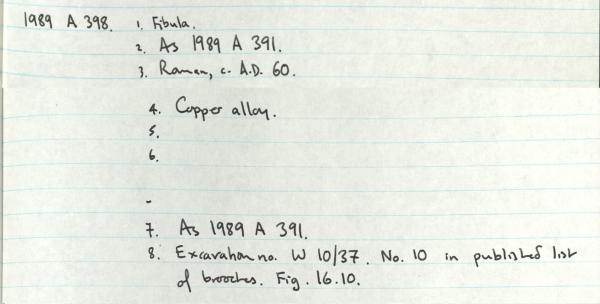 1989 A 398. 1. Fibula.
2. As 1989 A 391.
3. Roman, c. A.D. 60.
4. Copper alloy.
5.
6.
-
7. As 1989 A 391.
8. Excavation no. W 10/37. No. 10 in published list
of brooches. Fig. 16.10.